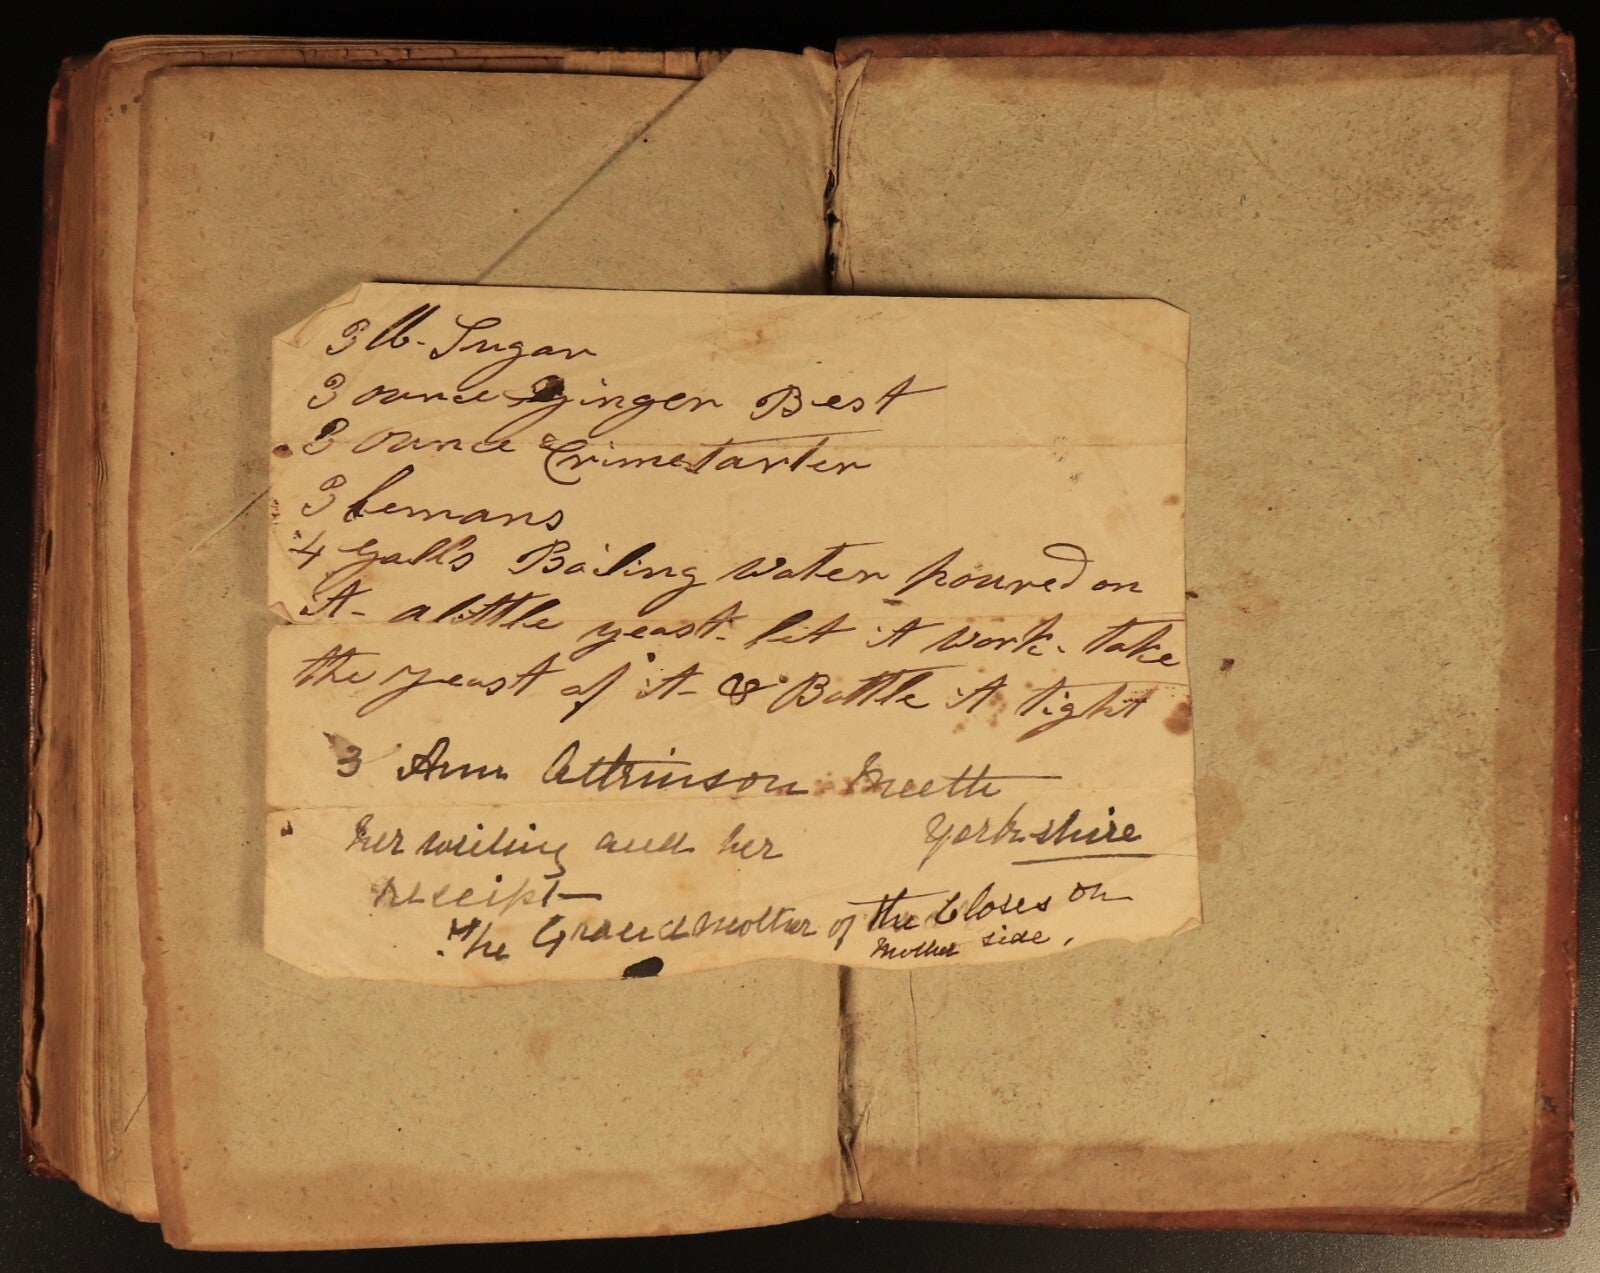 3 lb. Sugar
3 ounce Ginger Best
3 ounce Crimetarter
3 lemans
4 Gall's Boiling water poured on
it - a little yeast - let it work - take
the yeast of it - & Bottle it tight
3 Ann Attkinson
her writing and her Yorkshire
receipt
The Grandmother of the Closes on
Mother side,